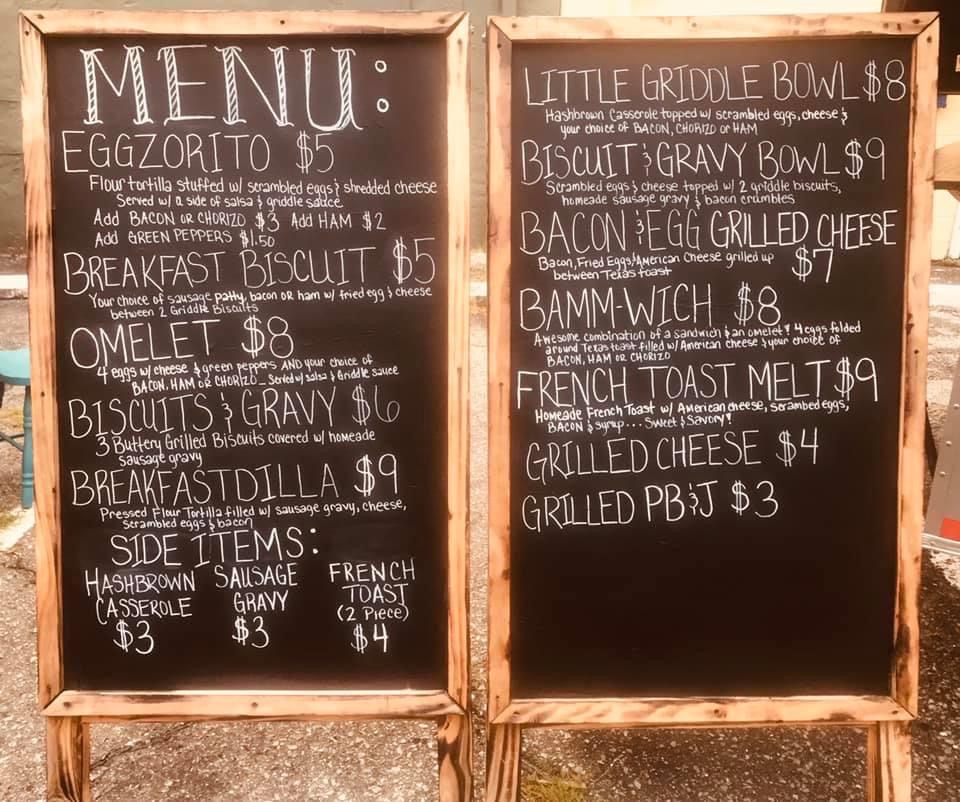 MENU:
EGGZORITO $5
Flour tortilla stuffed w/ scrambled eggs & shredded cheese
Served w/ a side of salsa & griddle sauce
Add BACON OR CHORIZO $3 Add HAM $2
Add GREEN PEPPERS $1.50
BREAKFAST BISCUIT $5
Your choice of sausage patty, bacon OR ham w/ fried egg & cheese
between 2 Griddle Biscuits
OMELET $8
4 eggs w/ cheese & green peppers AND your choice of
BACON, HAM OR CHORIZO... Served w/ salsa & Griddle sauce
BISCUITS & GRAVY $6
3 Buttery Grilled Biscuits covered w/ homeade
sausage gravy
BREAKFASTDILLA $9
Pressed Flour Tortilla filled w/ sausage gravy, cheese,
scrambled eggs & bacon
SIDE ITEMS:
HASHBROWN CASSEROLE $3
SAUSAGE GRAVY $3
FRENCH TOAST (2 Piece) $4
LITTLE GRIDDLE BOWL $8
Hashbrown Casserole topped w/ scrambled eggs, cheese &
your choice of BACON, CHORIZO or HAM
BISCUIT & GRAVY BOWL $9
Scrambled eggs & cheese topped w/ 2 griddle biscuits,
homeade sausage gravy & bacon crumbles
BACON & EGG GRILLED CHEESE
Bacon, Fried Eggs & American Cheese grilled up $7
between Texas toast
BAMM-WICH $8
Awesome combination of a sandwich & an omelet! 4 eggs folded
around Texas toast filled w/ American cheese & your choice of
BACON, HAM OR CHORIZO
FRENCH TOAST MELT $9
Homeade French Toast w/ American cheese, scrambed eggs,
BACON & syrup... Sweet & Savory!
GRILLED CHEESE $4
GRILLED PB&J $3